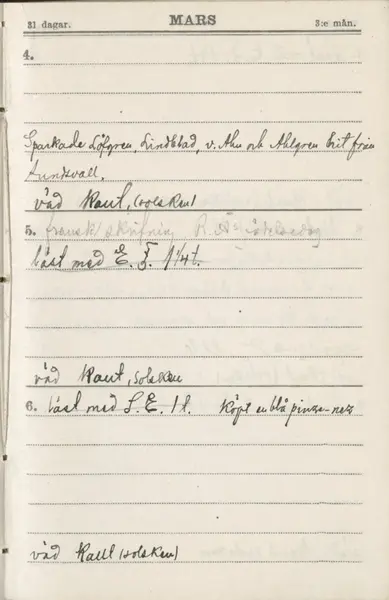 31 dagar. MARS 3:e mån.
4.
Sparkade Löfgren, Lindblad, v. Ahn och Ahlgren hit från
Sundsvall.
väd Kallt, (solsken)
5. fransk skrifning R. A:s
läst med E. F. 1 1/4 t.
väd Kallt, solsken
6. läst med S. E. 1 t. Köpt en blå pinze-nez
väd Kallt (solsken)